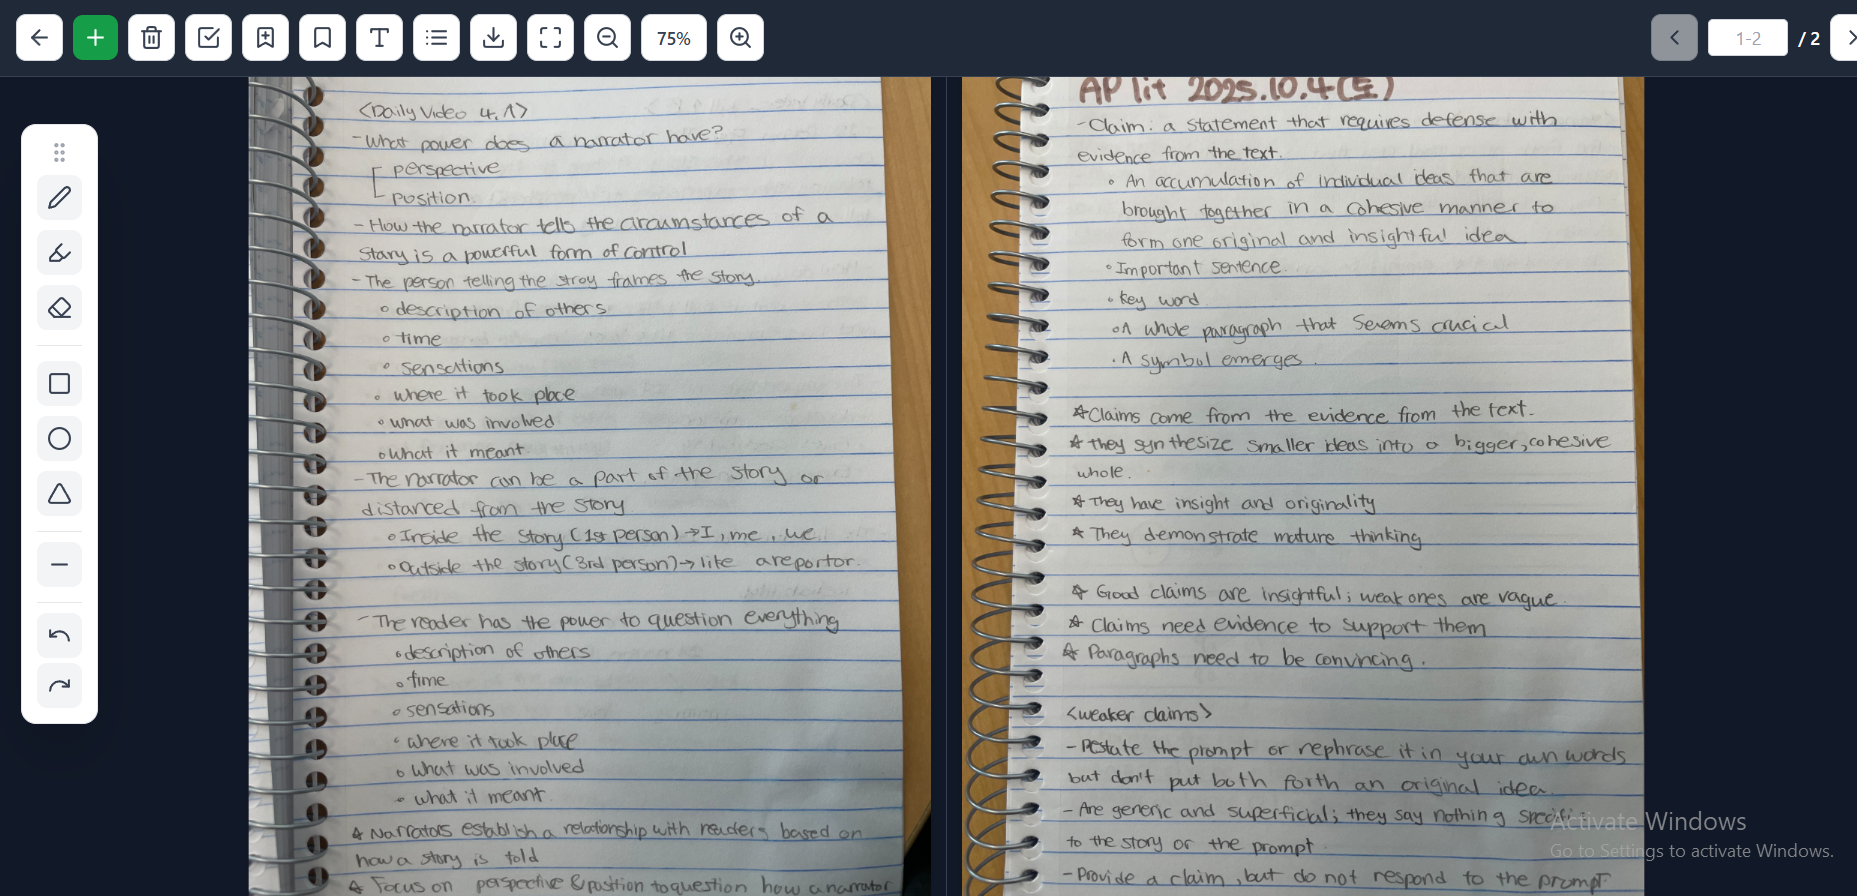 75%
1-2
/ 2
<Daily Video 4.1>
- What power does a narrator have?
perspective
position
- How the narrator tells the circumstances of a
story is a powerful form of control
- The person telling the stroy frames the story.
◦ description of others
◦ time
◦ sensations
◦ where it took place
◦ what was involved
◦ what it meant
- The narrator can be a part of the story or
distanced from the story
◦ Inside the story (1st person) → I, me, we
◦ outside the story (3rd person) → like a reportor.
- The reader has the power to question everything
◦ description of others
◦ time
◦ sensations
◦ where it took place
◦ what was involved
◦ what it meant
☆ Narrators establish a relationship with readers based on
how a story is told
☆ Focus on perspective & position to question how a narrator
AP lit 2025.10.4(토)
- Claim: a statement that requires defense with
evidence from the text.
◦ An accumulation of individual ideas that are
brought together in a cohesive manner to
form one original and insightful idea
◦ Important sentence.
◦ key word
◦ A whole paragraph that seems crucial
◦ A symbol emerges.
☆ Claims come from the evidence from the text.
☆ they synthesize smaller ideas into a bigger, cohesive
whole.
☆ They have insight and originality
☆ They demonstrate mature thinking
☆ Good claims are insightful; weak ones are vague.
☆ Claims need evidence to support them
☆ Paragraphs need to be convincing.
<weaker claims>
- Restate the prompt or rephrase it in your own words
but don't put both forth an original idea.
- Are generic and superficial; they say nothing specific
to the story or the prompt.
- Provide a claim, but do not respond to the prompt
Activate Windows
Go to Settings to activate Windows.